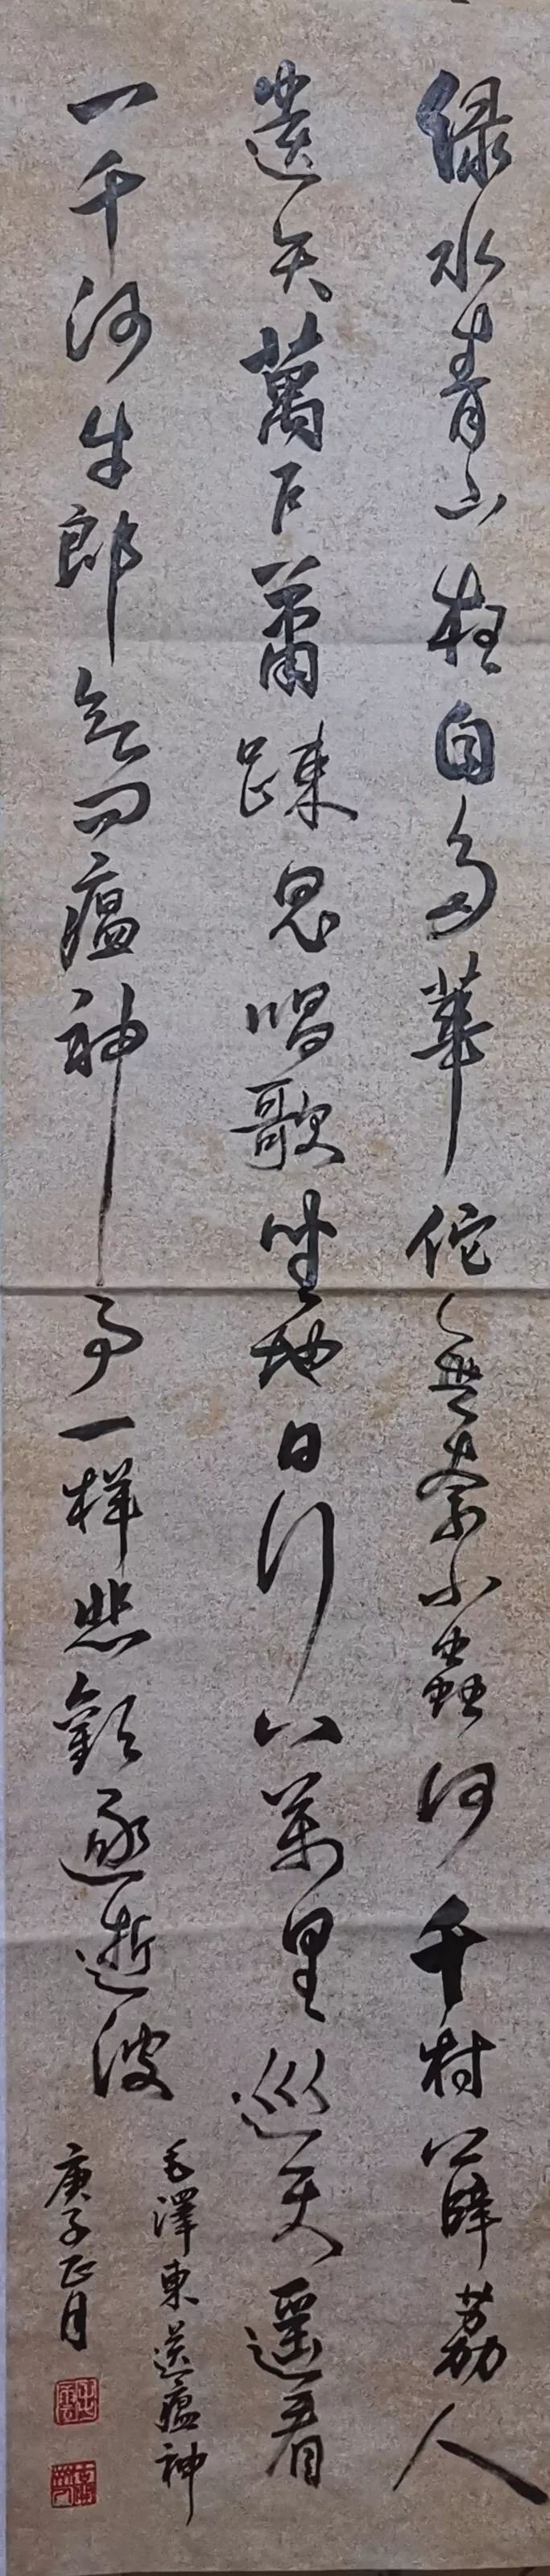 绿水青山枉自多華佗無奈小蟲何千村薜荔人
遺矢萬戶蕭疎鬼唱歌坐地日行八萬里巡天遥看
一千河牛郎欲问瘟神事一样悲歡逐逝波
毛澤東送瘟神
庚子正月